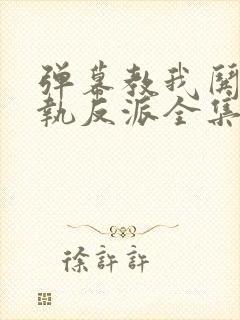 弹幕教我関
執反派全集
徐許許